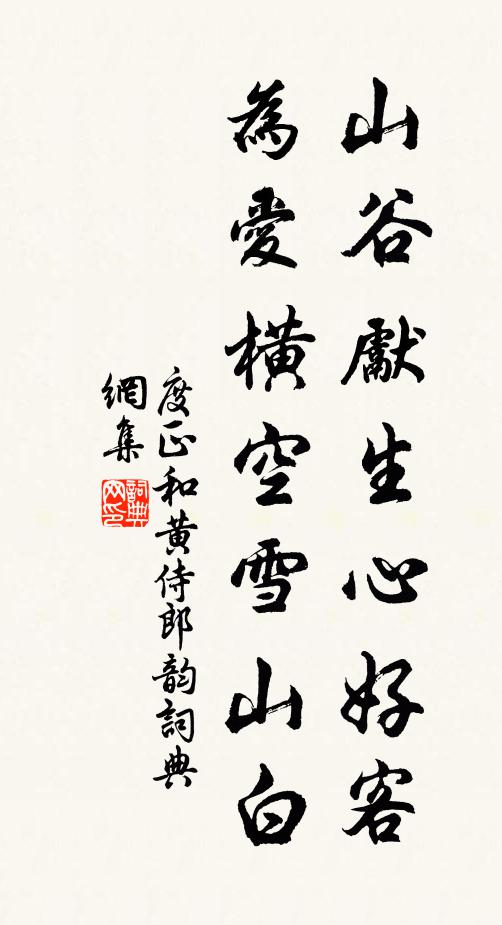 山谷獻生心好客
為愛橫空雪山白
度正和黃侍郎韵詞典
網集
詞典
网印